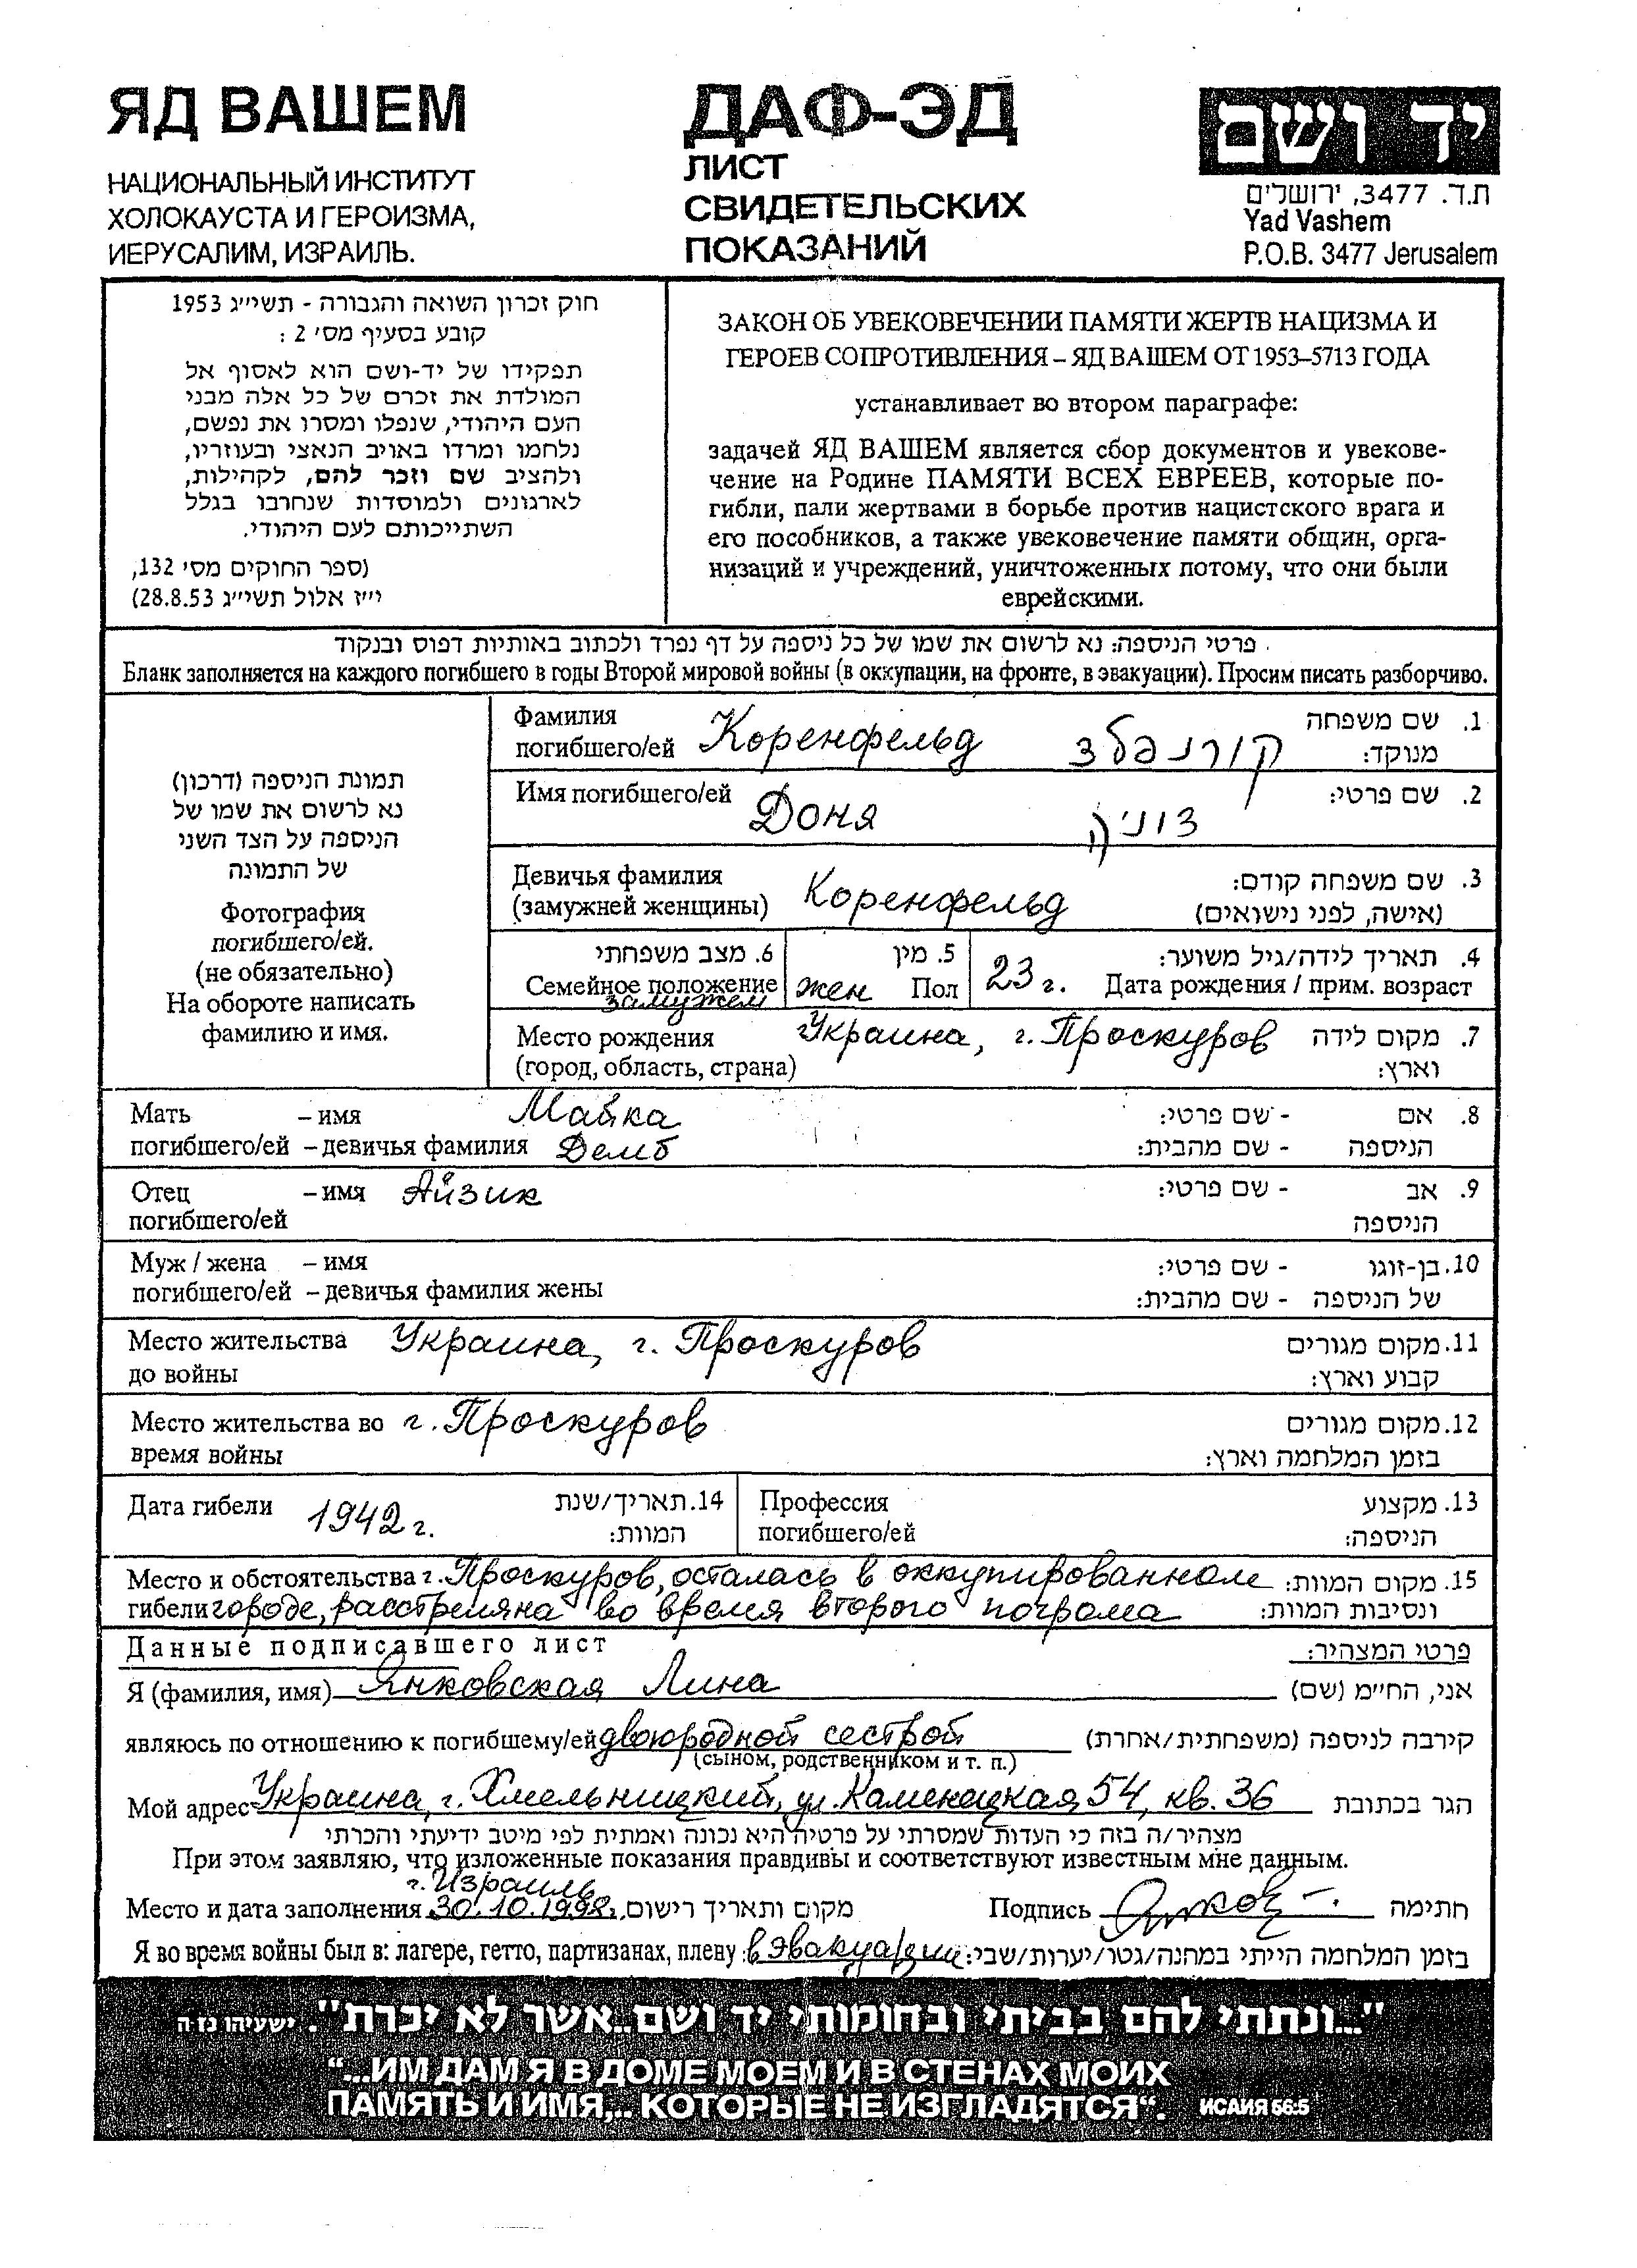 ЯД ВАШЕМ
НАЦИОНАЛЬНЫЙ ИНСТИТУТ
ХОЛОКАУСТА И ГЕРОИЗМА,
ИЕРУСАЛИМ, ИЗРАИЛЬ.
ДАФ-ЭД
ЛИСТ
СВИДЕТЕЛЬСКИХ
ПОКАЗАНИЙ
יד ושם
ת.ד. 3477, ירושלים
Yad Vashem
P.O.B. 3477 Jerusalem
חוק זכרון השואה והגבורה - תשי״ג 1953
קובע בסעיף מס׳ 2 :
תפקידו של יד-ושם הוא לאסוף אל
המולדת את זכרם של כל אלה מבני
העם היהודי, שנפלו ומסרו את נפשם,
נלחמו ומרדו באויב הנאצי ובעוזריו,
ולהציב שם וזכר להם, לקהילות,
לארגונים ולמוסדות שנחרבו בגלל
השתייכותם לעם היהודי.
(ספר החוקים מס׳ 132,
י״ז אלול תשי״ג 28.8.53)
ЗАКОН ОБ УВЕКОВЕЧЕНИИ ПАМЯТИ ЖЕРТВ НАЦИЗМА И
ГЕРОЕВ СОПРОТИВЛЕНИЯ – ЯД ВАШЕМ ОТ 1953–5713 ГОДА
устанавливает во втором параграфе:
задачей ЯД ВАШЕМ является сбор документов и увекове-
чение на Родине ПАМЯТИ ВСЕХ ЕВРЕЕВ, которые по-
гибли, пали жертвами в борьбе против нацистского врага и
его пособников, а также увековечение памяти общин, орга-
низаций и учреждений, уничтоженных потому, что они были
еврейскими.
פרטי הניספה: נא לרשום את שמו של כל ניספה על דף נפרד ולכתוב באותיות דפוס ובנקוד.
Бланк заполняется на каждого погибшего в годы Второй мировой войны (в оккупации, на фронте, в эвакуации). Просим писать разборчиво.
תמונת הניספה (דרכון)
נא לרשום את שמו של
הניספה על הצד השני
של התמונה
Фотография
погибшего/ей.
(не обязательно)
На обороте написать
фамилию и имя.
Фамилия 1. שם משפחה
погибшего/ей Коренфельд קורנפלד מנוקד:
Имя погибшего/ей Доня דוניה 2. שם פרטי:
Девичья фамилия 3. שם משפחה קודם:
(замужней женщины) Коренфельд (אישה, לפני נישואים)
6. מצב משפחתי 5. מין 4. תאריך לידה/גיל משוער:
Семейное положение замужем жен Пол 23 г. Дата рождения / прим. возраст
Место рождения Украина, г. Проскуров 7. מקום לידה
(город, область, страна) וארץ:
Мать – имя Майка 8. אם - שם פרטי:
погибшего/ей – девичья фамилия Демб הניספה - שם מהבית:
Отец – имя Айзик 9. אב - שם פרטי:
погибшего/ей הניספה
Муж / жена – имя 10. בן-זוגו - שם פרטי:
погибшего/ей – девичья фамилия жены של הניספה - שם מהבית:
Место жительства Украина, г. Проскуров 11. מקום מגורים
до войны קבוע וארץ:
Место жительства во г. Проскуров 12. מקום מגורים
время войны בזמן המלחמה וארץ:
Дата гибели 1942 г. 14. תאריך/שנת המוות:
Профессия 13. מקצוע
погибшего/ей הניספה:
Место и обстоятельства г. Проскуров, осталась в оккупированном 15. מקום המוות:
гибели городе, расстреляна во время второго пограма ונסיבות המוות:
Данные подписавшего лист פרטי המצהיר:
Я (фамилия, имя) Янковская Лина אני, החי״מ (שם)
являюсь по отношению к погибшему/ей двоюродной сестрой קירבה לניספה (משפחתית/אחרת)
(сыном, родственником и т. п.)
Мой адрес Украина, г. Хмельницкий, ул. Каменецкая, 54, кв. 36 הגר בכתובת
מצהיר/ה בזה כי העדות שמסרתי על פרטיה היא נכונה ואמתית לפי מיטב ידיעתי והכרתי
При этом заявляю, что изложенные показания правдивы и соответствуют известным мне данным.
г. Израиль
Место и дата заполнения 30.10.1998г. מקום ותאריך רישום Подпись חתימה
Я во время войны был в: лагере, гетто, партизанах, плену: в эвакуации בזמן המלחמה הייתי במחנה/גטו/יערות/שבי:
"...ונתתי להם בביתי ובחומותי יד ושם..אשר לא יכרת". ישעיהו נז ה
“...ИМ ДАМ Я В ДОМЕ МОЕМ И В СТЕНАХ МОИХ
ПАМЯТЬ И ИМЯ,.. КОТОРЫЕ НЕ ИЗГЛАДЯТСЯ“. ИСАИЯ 56:5